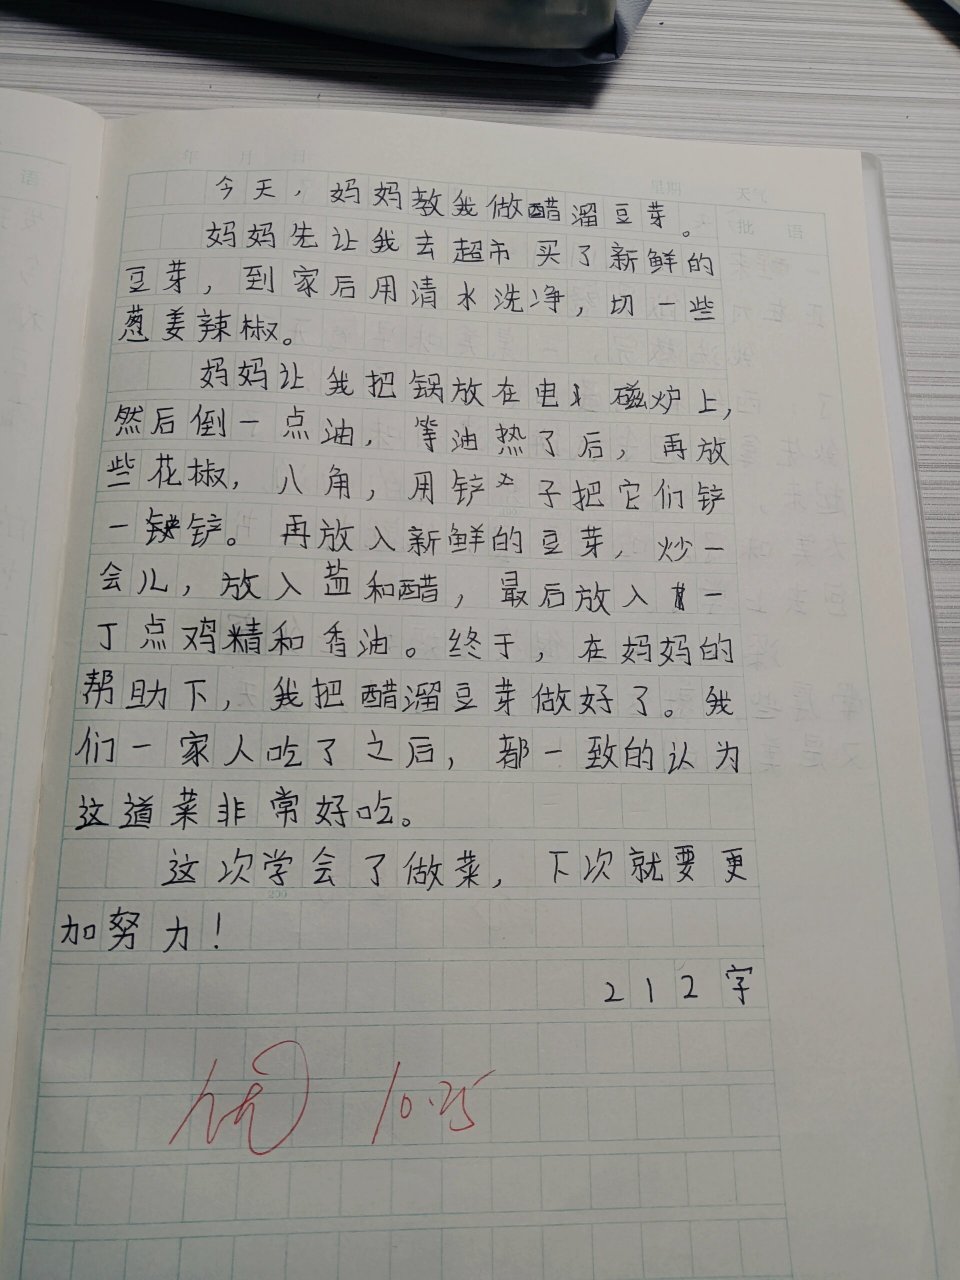 年 月 日
星期 天气
批 语
今天，妈妈教我做醋溜豆芽。
妈妈先让我去超市买了新鲜的
豆芽，到家后用清水洗净，切一些
葱姜辣椒。
妈妈让我把锅放在电磁炉上，
然后倒一点油，等油热了后，再放
些花椒，八角，用铲子把它们铲
一铲。再放入新鲜的豆芽，炒一
会儿，放入盐和醋，最后放入一
丁点鸡精和香油。终于，在妈妈的
帮助下，我把醋溜豆芽做好了。我
们一家人吃了之后，都一致的认为
这道菜非常好吃。
这次学会了做菜，下次就要更
200
加努力！
212字
优 10.25